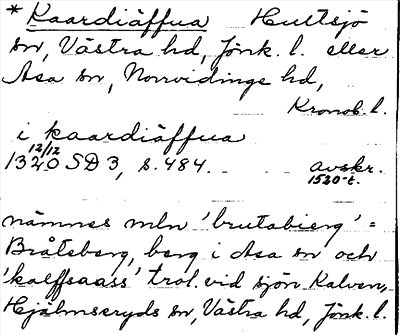 * Kaardiäffua Hultsjö
sn, Västra hd, Jönk. l. eller
Asa sn, Norrvidinge hd,
Kronob. l.
i kaardiäffua
12/12
1320 SD 3, s. 484. avskr.
1520-t.
nämnes mln 'brutabierg' =
Bråteberg, berg i Asa sn och
'kalffsaass' trol. vid sjön Kalven,
Hjälmseryds sn, Västra hd, Jönk. l.